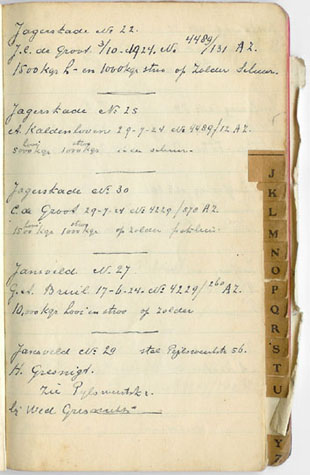 Jagerskade No 22.
J.C. de Groot 3/10-1924. No 4489/131 AZ.
1500 kgr h- en 1000 kgr stroo op Zolder Schuur.
Jagerskade No 25
A. Kaldenhoven 29-7-24 No 4489/12 AZ.
5000 kgr hooi 1000 kgr stroo in de schuur.
Jagerskade No. 30
C. de Groot 29-7-24 No 4229/070 AZ
1500 kgr hooi 1000 kgr stroo op zolder
Jansveld No. 27
J. A. Bruil 17-6-24. No 4229/260 AZ.
10.000 kgr hooi en stroo op zolder
Jansveld No 29 56.
H. Gresnigt.
Zie Pijlsweertstr.
bij Wed Gresnigt
J
K
L
M
N
O
P
Q
R
S
T
U
Y
Z